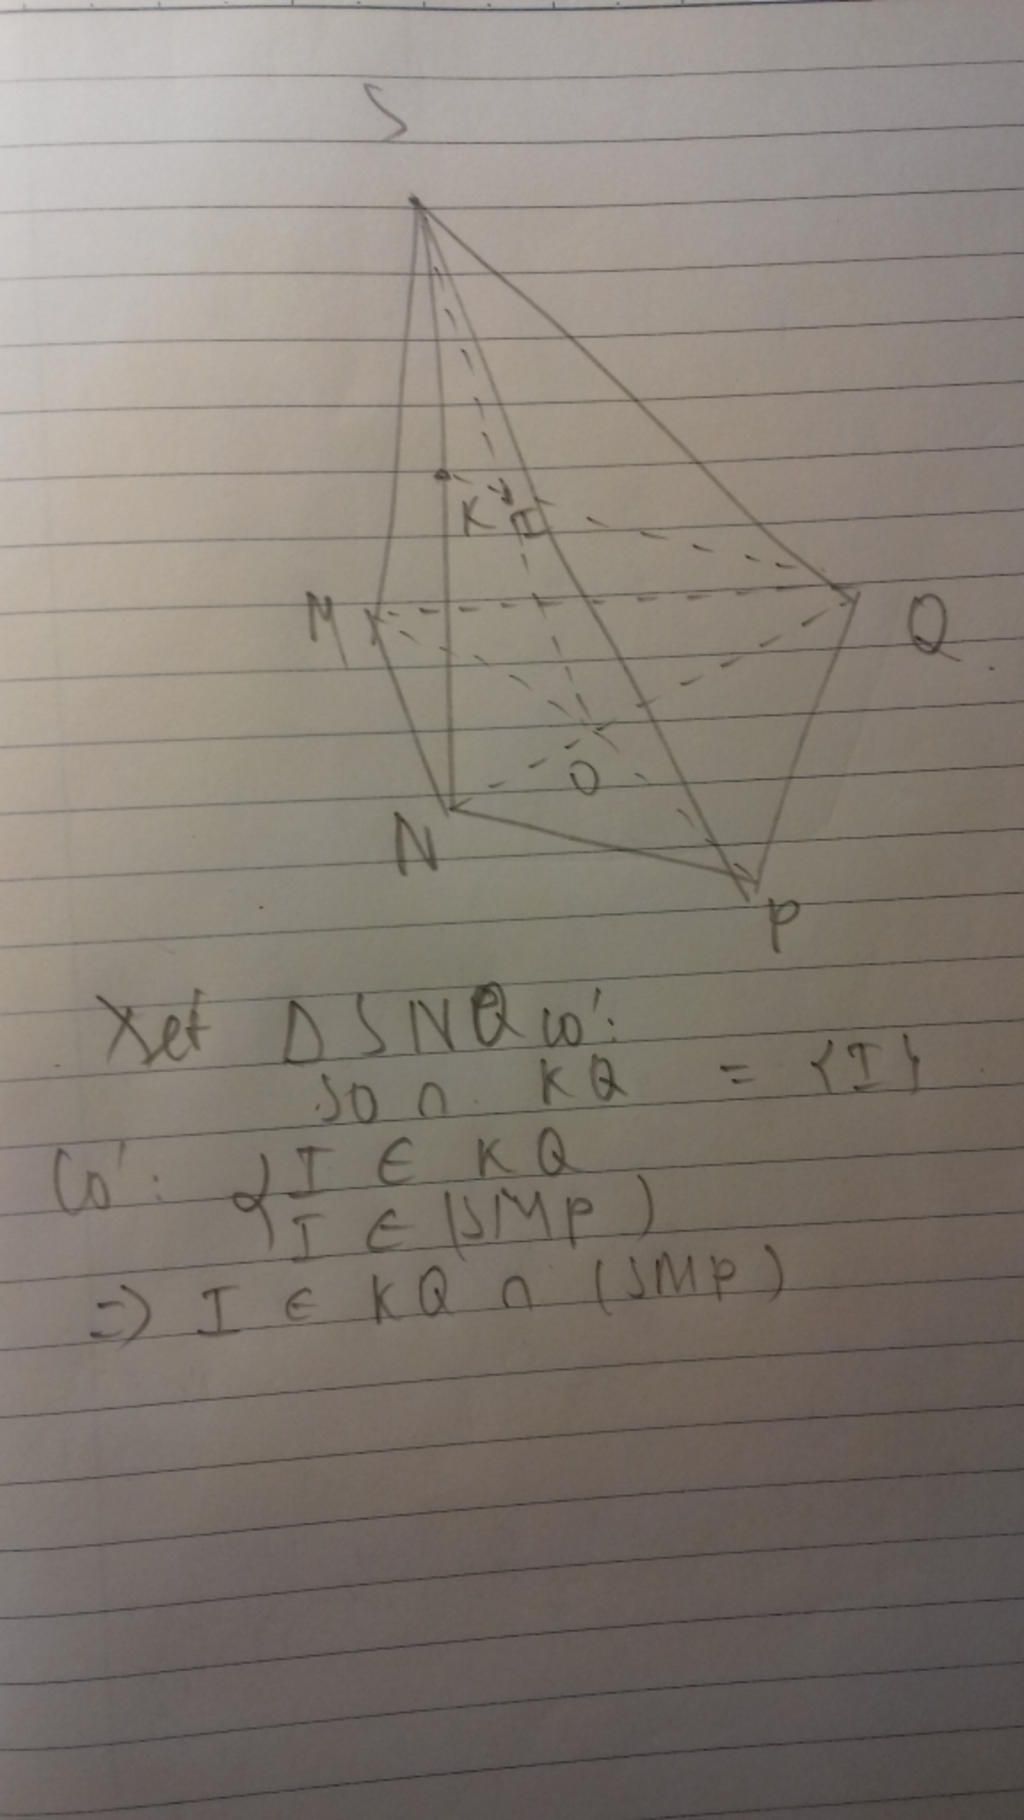 S
K I
M
Q
O
N
P
Xét Δ SNQ có:
SO ∩ KQ = {I}
Có: { I ∈ KQ
I ∈ (SMP)
=> I ∈ KQ ∩ (SMP)